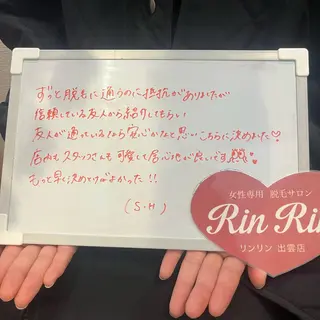 ずっと脱毛に通うのに抵抗がありましたが
信頼している友人から紹介してもらい
友人が通っているなら安心かなと思いこちらに決めました♡
店内もスタッフさんも可愛くて居心地が良いです
もっと早く決めとけばよかった!!
(S.H)
女性専用 脱毛サロン
Rin Rin
リンリン 出雲店